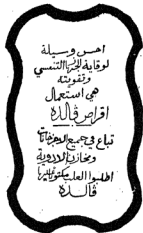 احسن وسيلة
لوقاية الجهاز التنفسي
وتقويته
هي استعمال
اقراص ڤالدة
تباع في جميع
ومخازن الادوية
اطلبوا العلب مكتوب عليها
ڤالدة